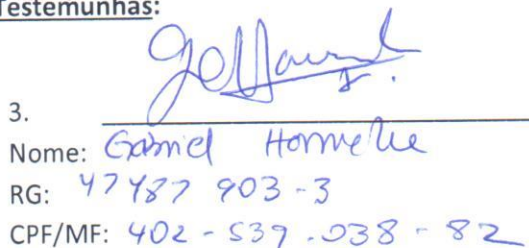 Testemunhas:
3.
Nome: Gabriel
RG: 47487 903-3
CPF/MF: 402-539.038-82